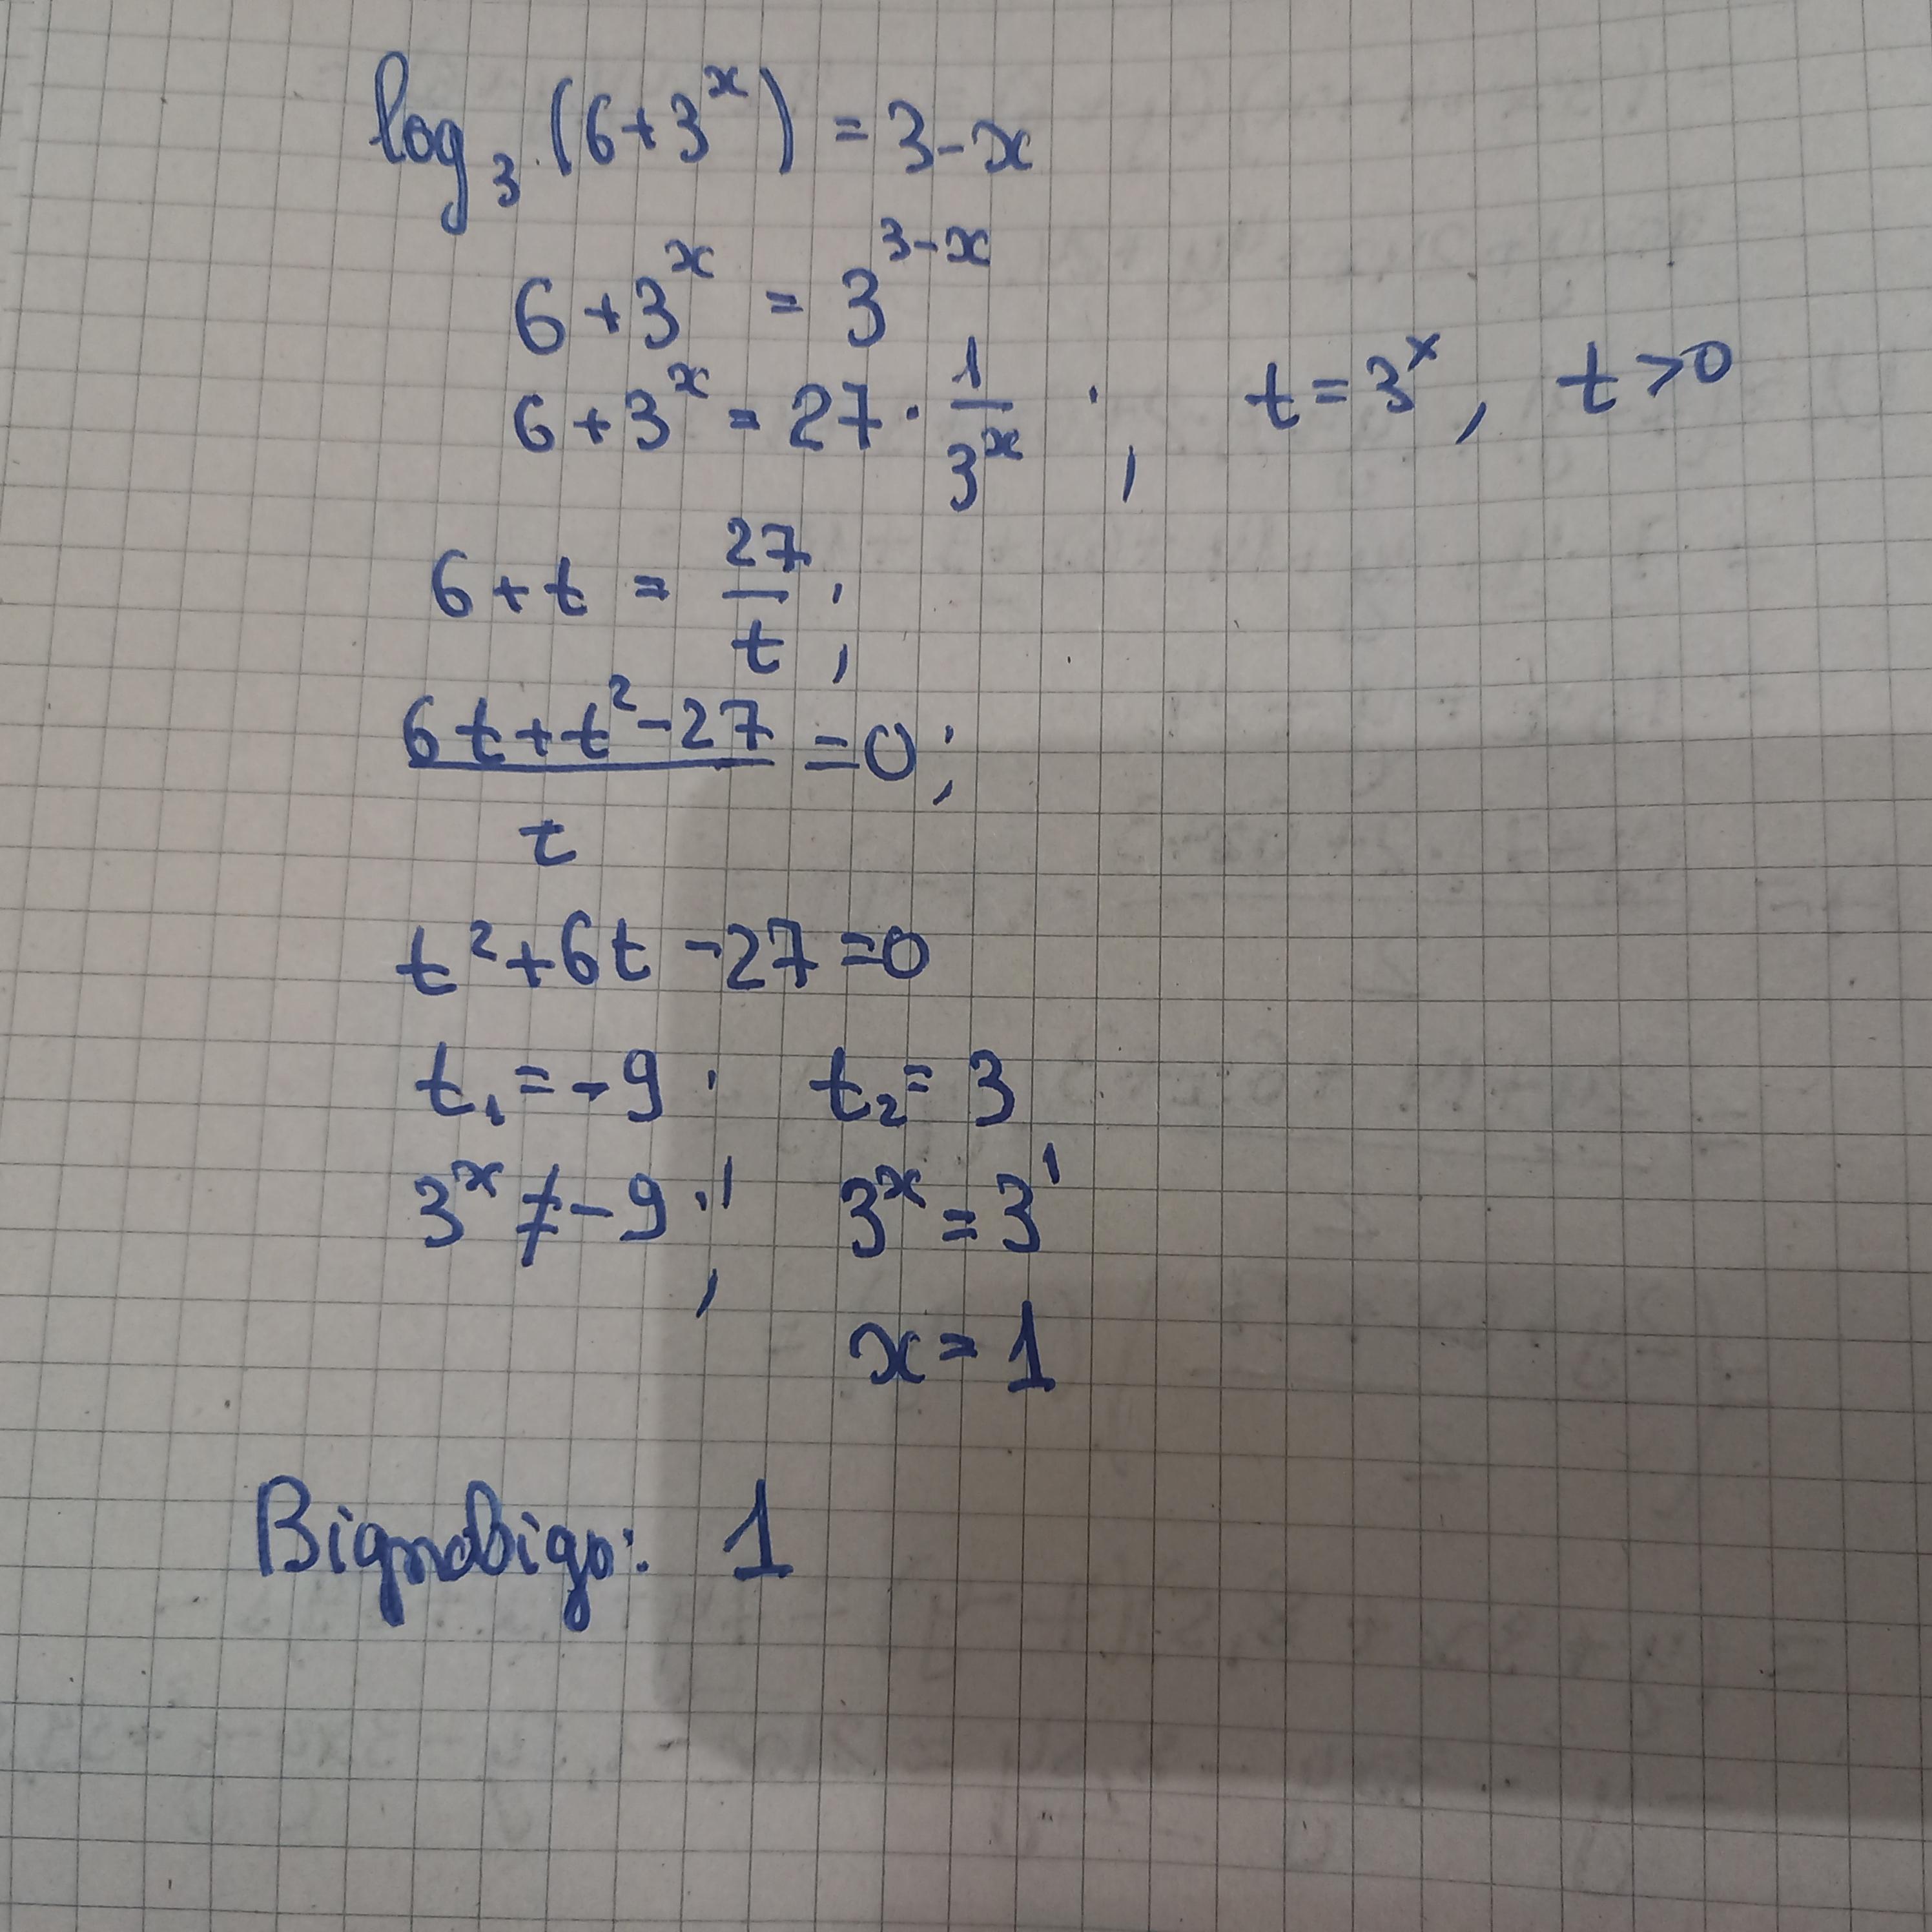 log₃(6+3ˣ) = 3-x
6+3ˣ = 3³⁻ˣ
6+3ˣ = 27 · 1/3ˣ ; t=3ˣ, t>0
6+t = 27/t ;
(6t+t²-27)/t =0;
t²+6t-27=0
t₁=-9; t₂=3
3ˣ≠-9; 3ˣ=3¹
x=1
Відповідь: 1